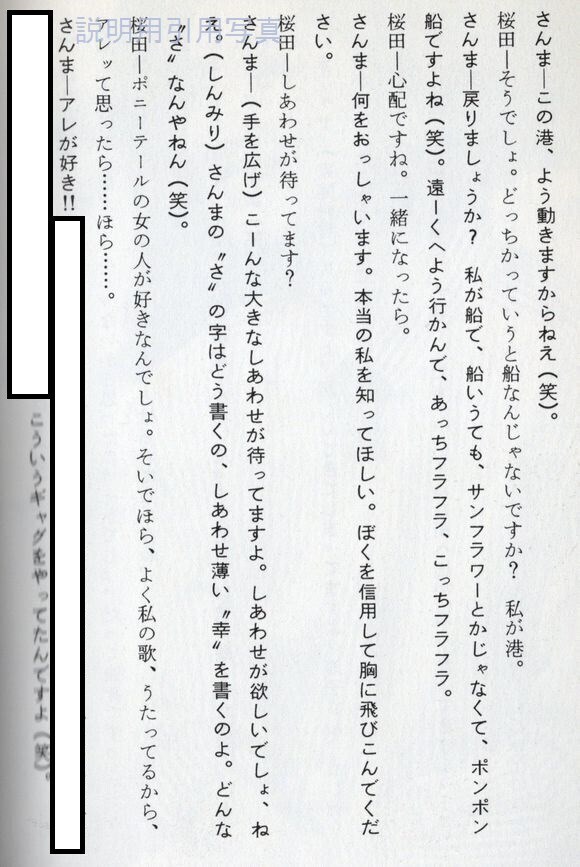 説明用引用写真
さんま―この港、よう動きますからねえ（笑）。
桜田―そうでしょ。どっちかっていうと船なんじゃないですか？　私が港。
さんま―戻りましょうか？　私が船で、船いうても、サンフラワーとかじゃなくて、ポンポン
船ですよね（笑）。遠ーくへよう行かんで、あっちフラフラ、こっちフラフラ。
桜田―心配ですね。一緒になったら。
さんま―何をおっしゃいます。本当の私を知ってほしい。ぼくを信用して胸に飛びこんでくだ
さい。
桜田―しあわせが待ってます？
さんま―（手を広げ）こーんな大きなしあわせが待ってますよ。しあわせが欲しいでしょ、ね
え。（しんみり）さんまの〝さ〟の字はどう書くの、しあわせ薄い〝幸〟を書くのよ。どんな
〝さ〟なんやねん（笑）。
桜田―ポニーテールの女の人が好きなんでしょ。そいでほら、よく私の歌、うたってるから、
アレッて思ったら……ほら……。
さんま―アレが好き!!
こういうギャグをやってたんですよ（笑）。